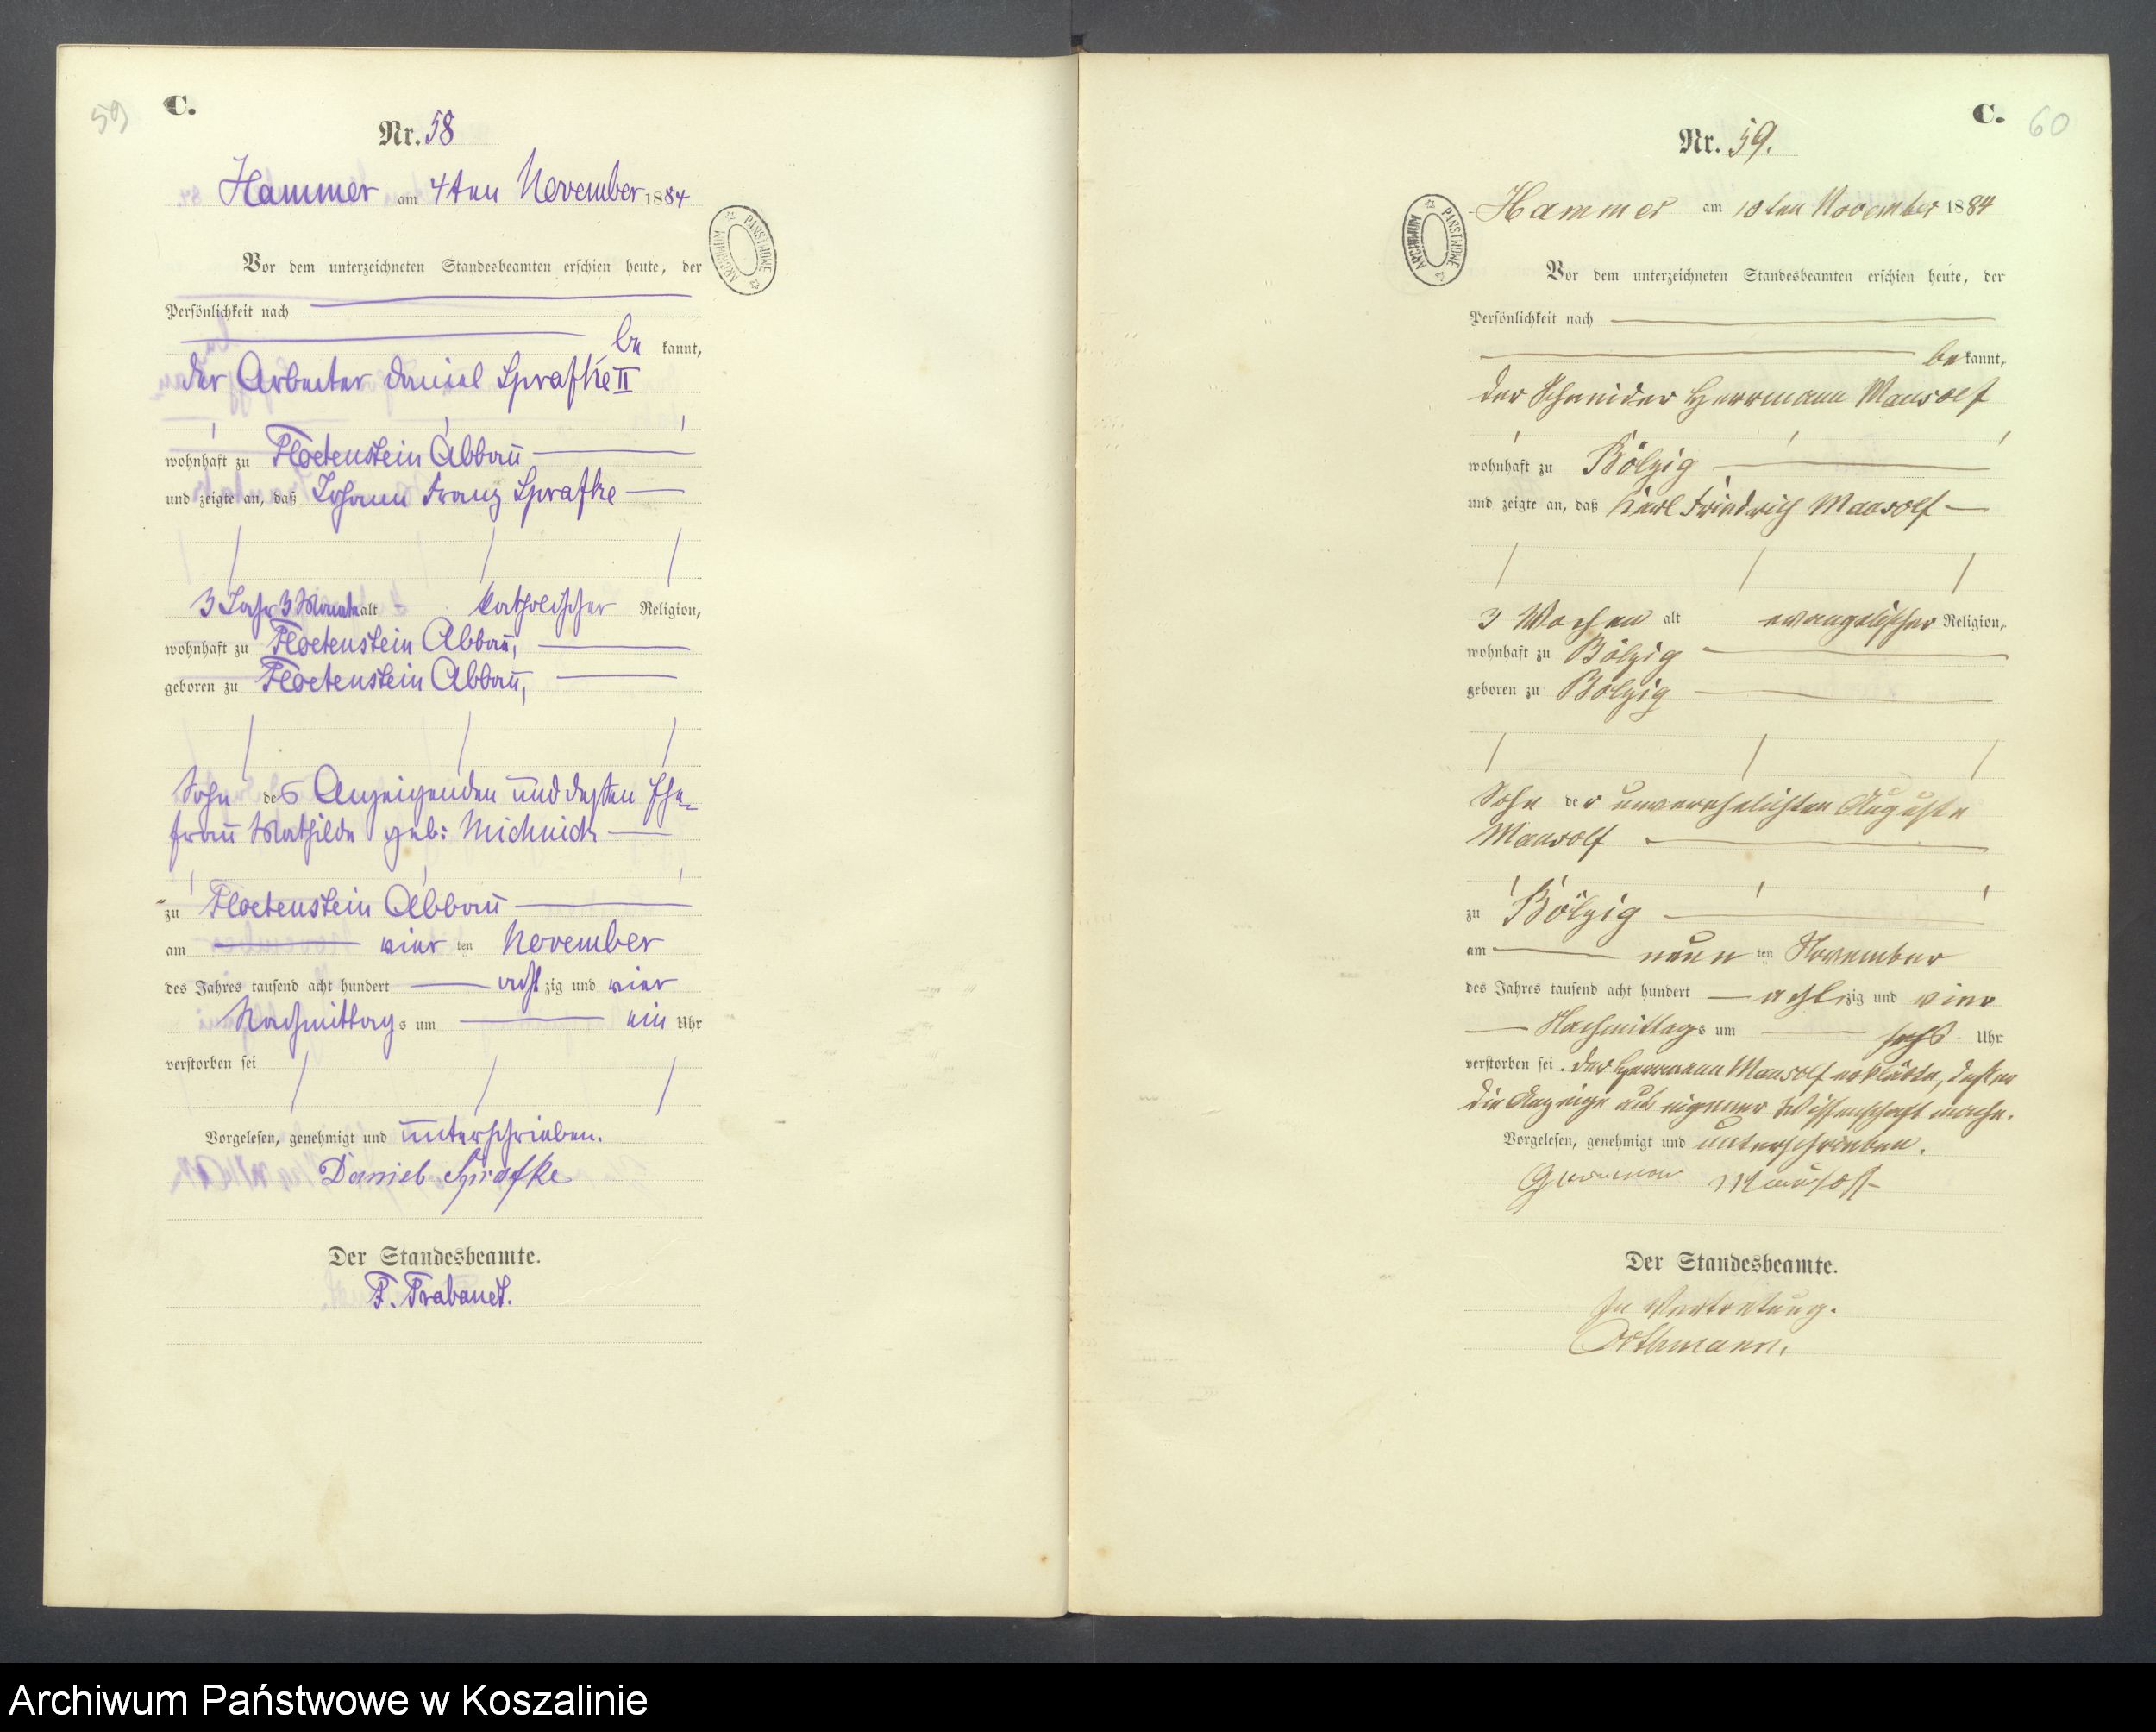 59
C.
Nr. 58
Hammer am 4ten November 1884
Vor dem unterzeichneten Standesbeamten erschien heute, der
Persönlichkeit nach
be kannt,
der Arbeiter Daniel Sprafke II
wohnhaft zu Floetenstein Abbau
und zeigte an, daß Johann Franz Sprafke
3 Jahr 3 Monate alt katholischer Religion,
wohnhaft zu Floetenstein Abbau,
geboren zu Floetenstein Abbau,
Sohn des Anzeigenden und dessen Ehe-
frau Mathilde geb: Michnick
zu Floetenstein Abbau
am vier ten November
des Jahres tausend acht hundert acht zig und vier
Nachmittags um ein Uhr
verstorben sei
Vorgelesen, genehmigt und unterschrieben.
Daniel Sprafke
Der Standesbeamte.
F. Trabandt.
ARCHIWUM PAŃSTWOWE
C.
60
Nr. 59.
Hammer am 10ten November 1884
Vor dem unterzeichneten Standesbeamten erschien heute, der
Persönlichkeit nach
be kannt,
der Schneider Herrmann Mausolf
wohnhaft zu Bölzig
und zeigte an, daß Karl Friedrich Mausolf
3 Wochen alt evangelischer Religion,
wohnhaft zu Bölzig
geboren zu Bölzig
Sohn der unverehelichten Auguste
Mausolf
zu Bölzig
am neun ten November
des Jahres tausend acht hundert acht zig und vier
Nachmittags um sechs Uhr
verstorben sei. Der Herrmann Mausolf erklärte, daß er
die Anzeige aus eigener Wissenschaft mache.
Vorgelesen, genehmigt und unterschrieben.
Mausolf
Der Standesbeamte.
In Vertretung.
Orthmann.
ARCHIWUM PAŃSTWOWE
Archiwum Państwowe w Koszalinie